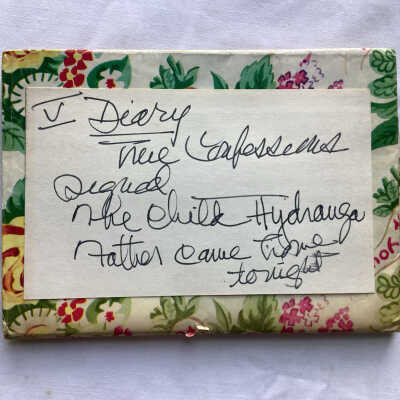 V Diary
True Confessions
Signed
The Child Hydranga
Father came home
tonight